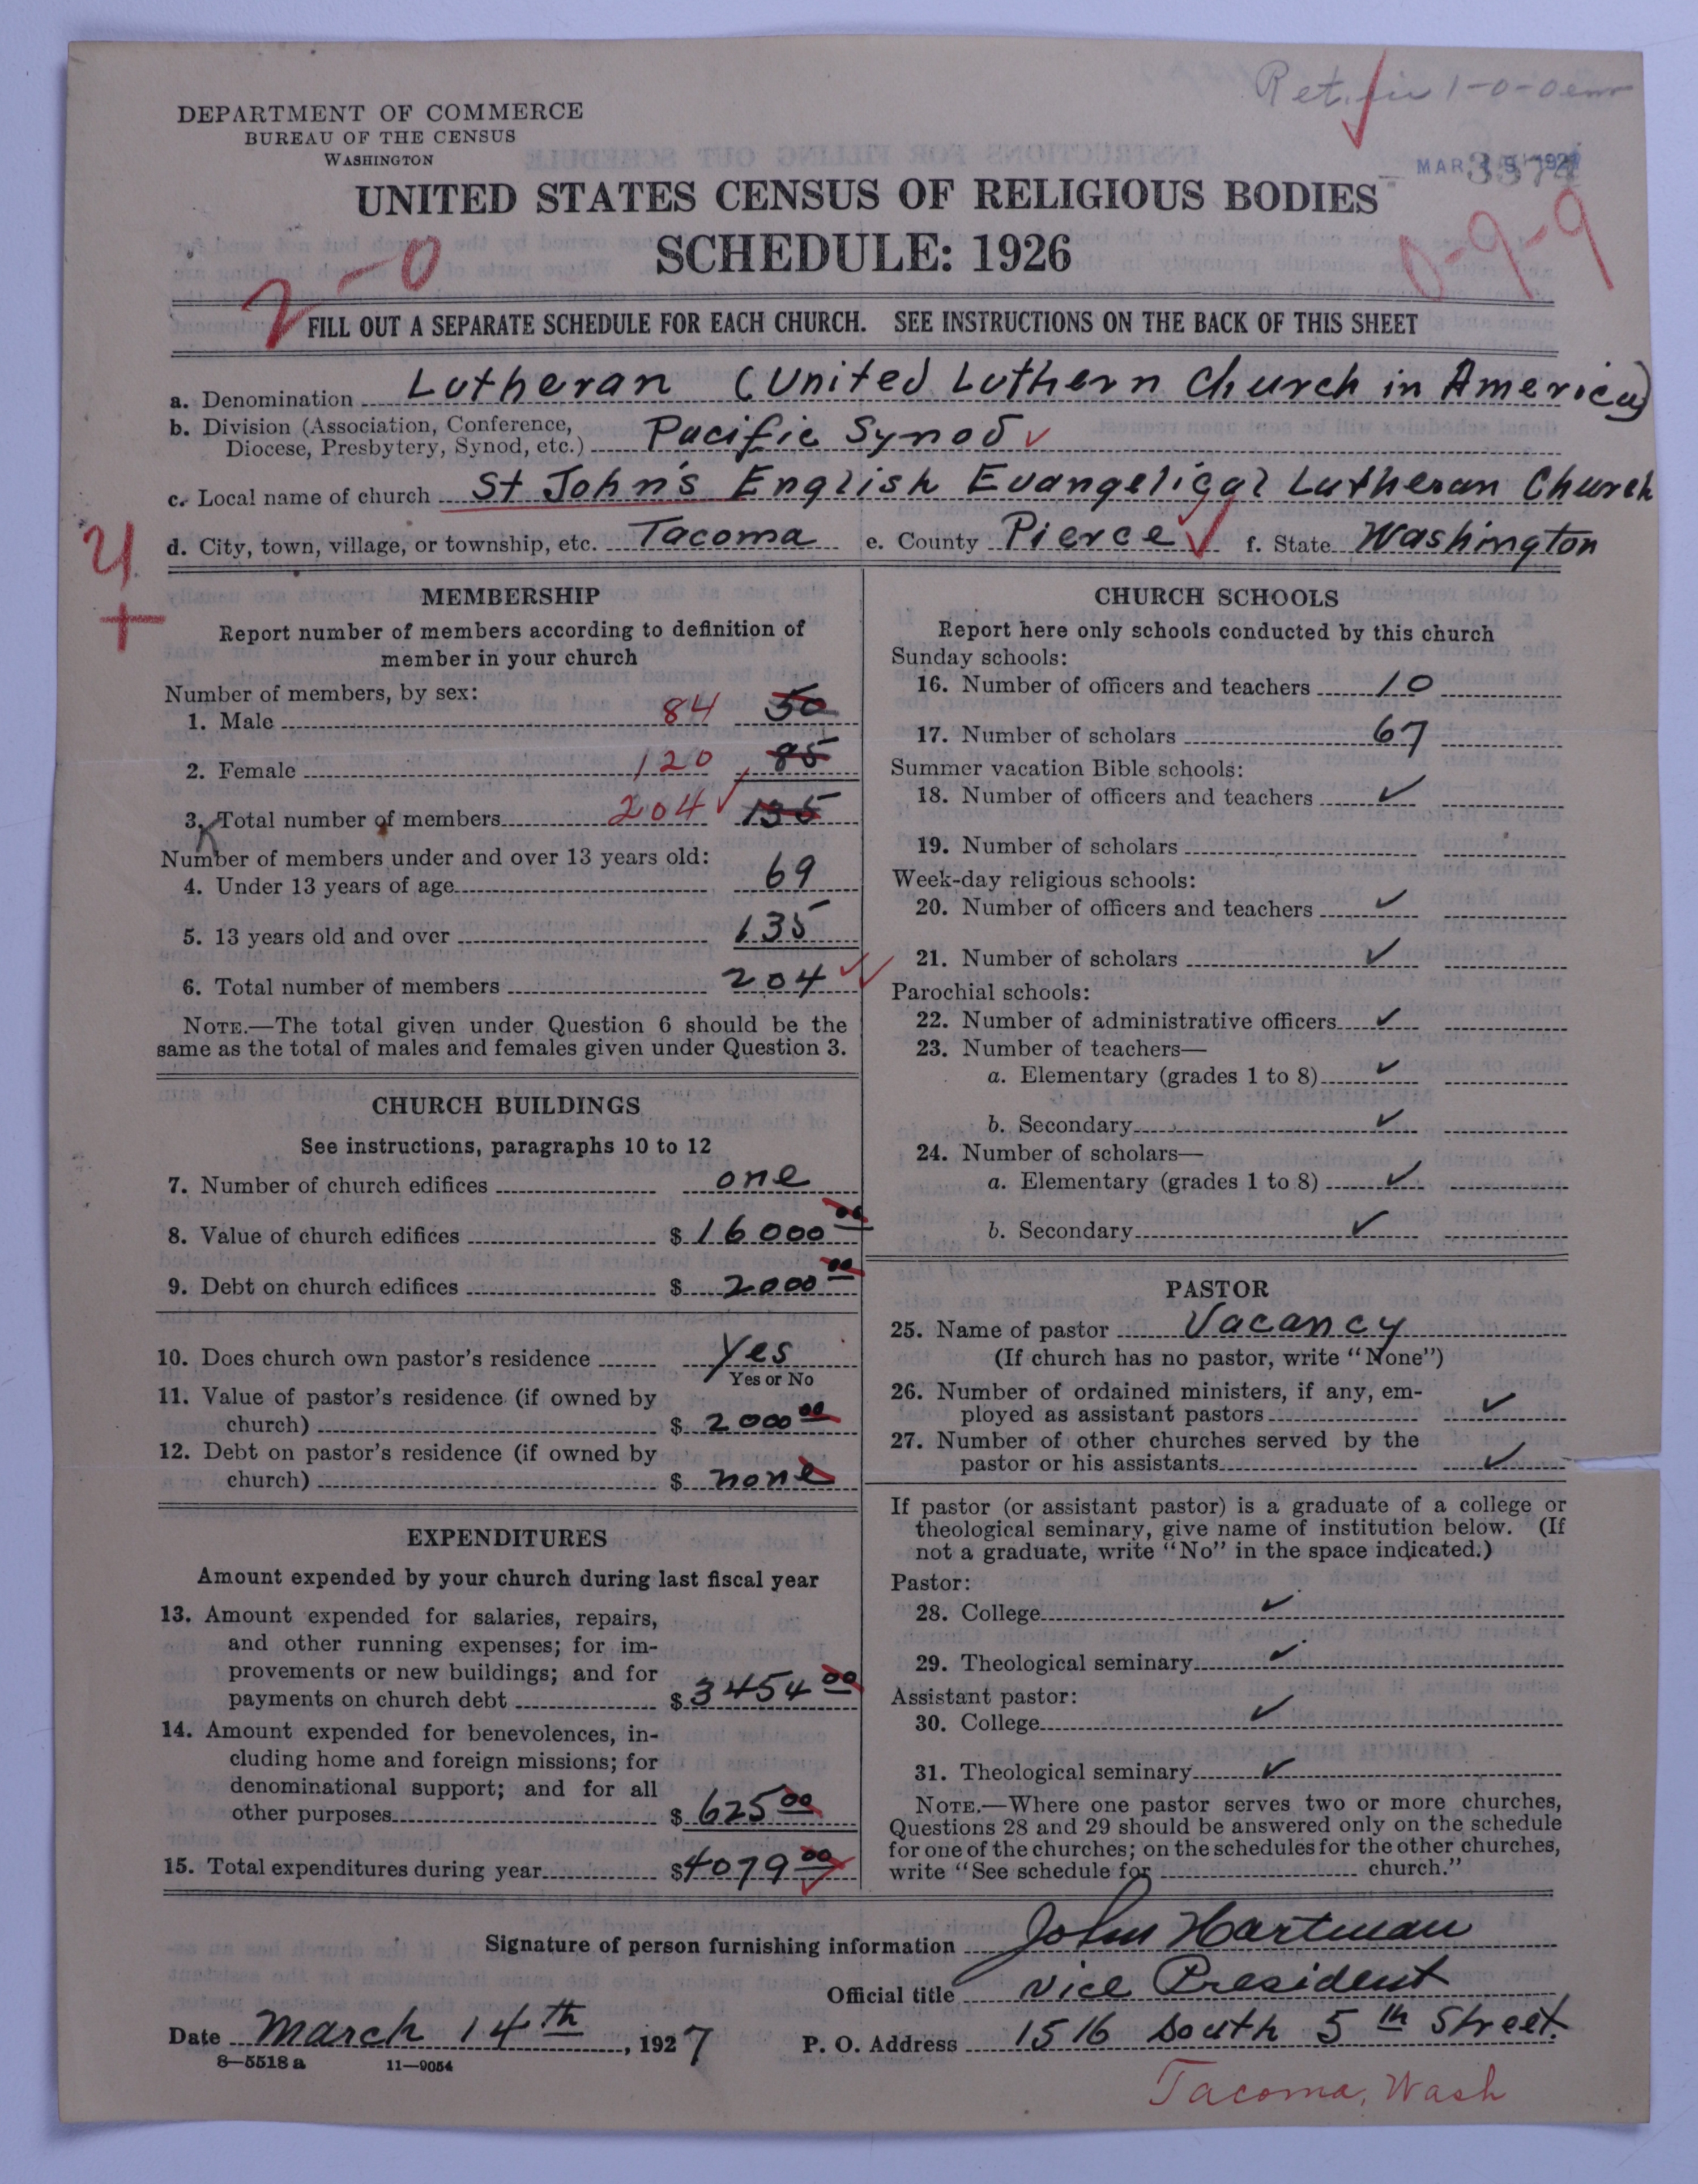 Ret. 1-0-0
DEPARTMENT OF COMMERCE
BUREAU OF THE CENSUS
WASHINGTON
MAR
UNITED STATES CENSUS OF RELIGIOUS BODIES
SCHEDULE: 1926
2-0
0-9-9
FILL OUT A SEPARATE SCHEDULE FOR EACH CHURCH. SEE INSTRUCTIONS ON THE BACK OF THIS SHEET
a. Denomination Lutheran (United Luthern Church in America)
b. Division (Association, Conference,
Diocese, Presbytery, Synod, etc.) Pacific Synod ✓
c. Local name of church St John's English Evangelical Lutheran Church
d. City, town, village, or township, etc. Tacoma e. County Pierce ✓ f. State Washington
4
+
MEMBERSHIP
Report number of members according to definition of
member in your church
Number of members, by sex:
1. Male 84 50
2. Female 120 85
3. Total number of members 204 ✓ 135
Number of members under and over 13 years old:
4. Under 13 years of age 69
5. 13 years old and over 135
6. Total number of members 204 ✓
NOTE.—The total given under Question 6 should be the
same as the total of males and females given under Question 3.
CHURCH BUILDINGS
See instructions, paragraphs 10 to 12
7. Number of church edifices one
8. Value of church edifices $ 16000 00
9. Debt on church edifices $ 2000 00
10. Does church own pastor's residence Yes
Yes or No
11. Value of pastor's residence (if owned by
church) $ 2000 00
12. Debt on pastor's residence (if owned by
church) $ none
EXPENDITURES
Amount expended by your church during last fiscal year
13. Amount expended for salaries, repairs,
and other running expenses; for im-
provements or new buildings; and for
payments on church debt $ 3454 00
14. Amount expended for benevolences, in-
cluding home and foreign missions; for
denominational support; and for all
other purposes $ 625 00
15. Total expenditures during year $ 4079 00
CHURCH SCHOOLS
Report here only schools conducted by this church
Sunday schools:
16. Number of officers and teachers 10
17. Number of scholars 67
Summer vacation Bible schools:
18. Number of officers and teachers ✓
19. Number of scholars
Week-day religious schools:
20. Number of officers and teachers ✓
21. Number of scholars ✓
Parochial schools:
22. Number of administrative officers ✓
23. Number of teachers—
a. Elementary (grades 1 to 8) ✓
b. Secondary ✓
24. Number of scholars—
a. Elementary (grades 1 to 8) ✓
b. Secondary ✓
PASTOR
25. Name of pastor Vacancy
(If church has no pastor, write "None")
26. Number of ordained ministers, if any, em-
ployed as assistant pastors ✓
27. Number of other churches served by the
pastor or his assistants ✓
If pastor (or assistant pastor) is a graduate of a college or
theological seminary, give name of institution below. (If
not a graduate, write "No" in the space indicated.)
Pastor:
28. College ✓
29. Theological seminary ✓
Assistant pastor:
30. College ✓
31. Theological seminary ✓
NOTE.—Where one pastor serves two or more churches,
Questions 28 and 29 should be answered only on the schedule
for one of the churches; on the schedules for the other churches,
write "See schedule for church."
Signature of person furnishing information John Hartman
Official title Vice President
Date March 14th, 1927 P. O. Address 1516 South 5th Street.
8—5518 a 11—9054
Tacoma, Wash